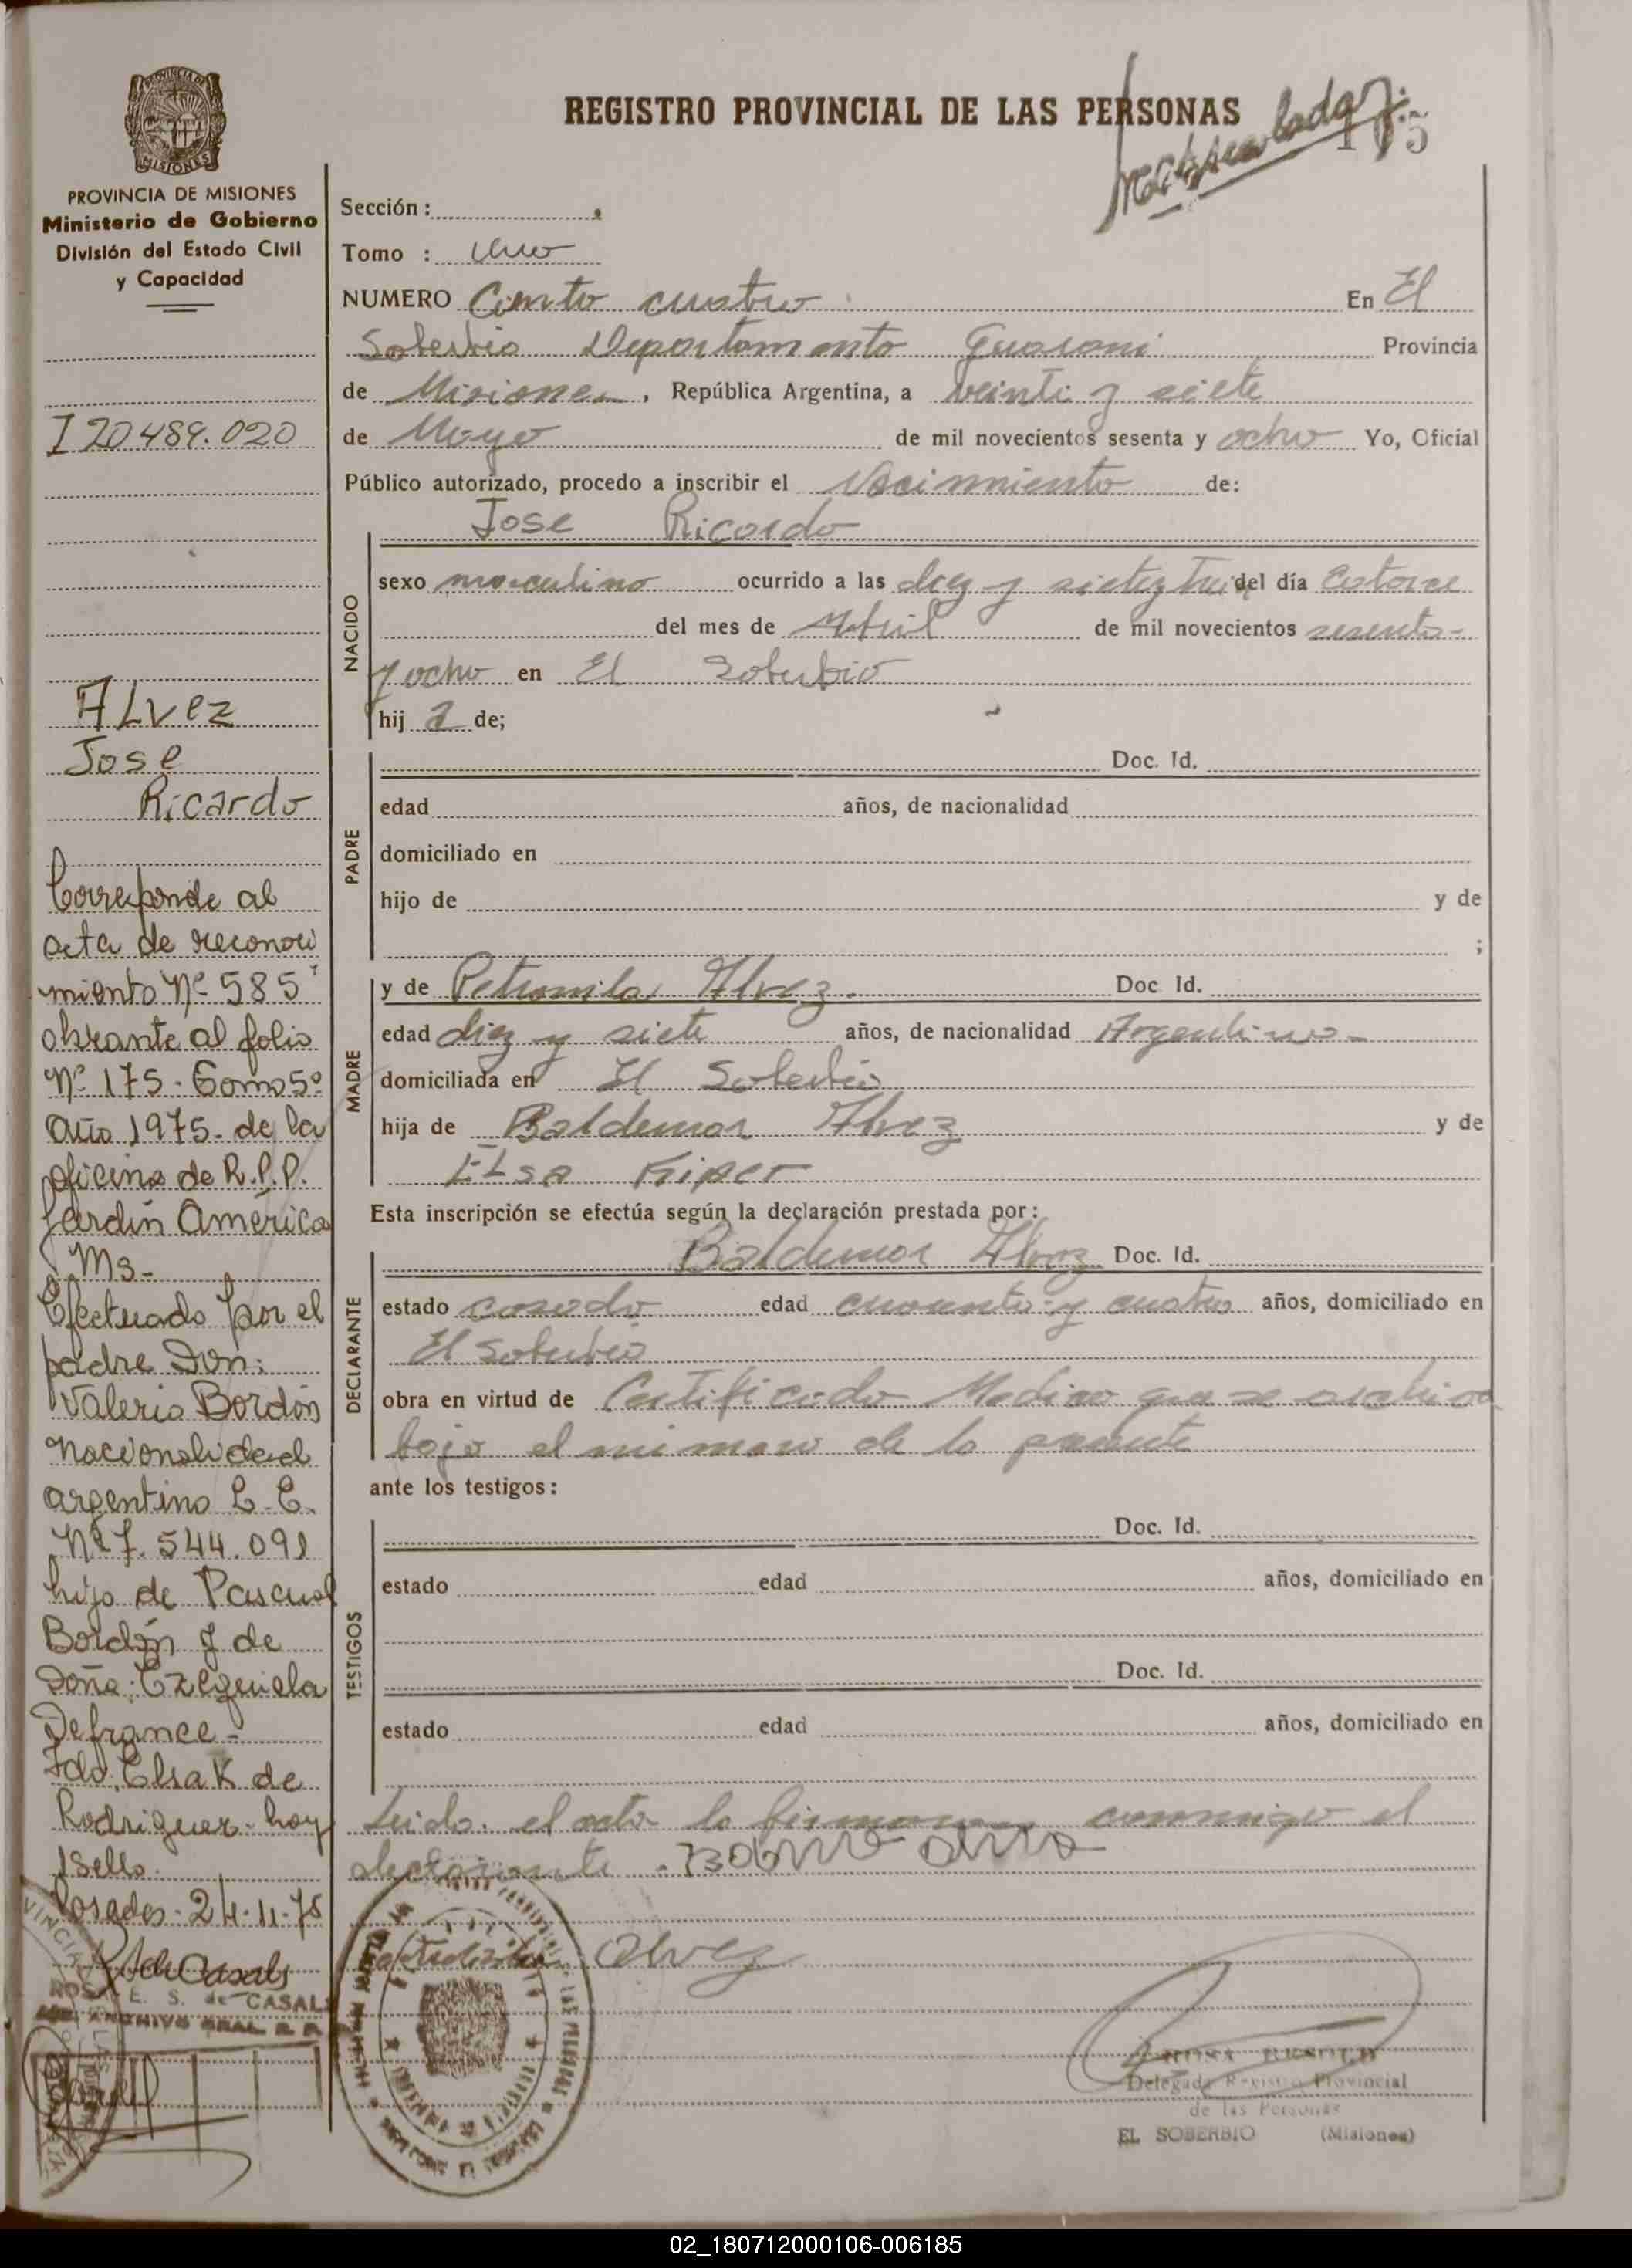 REGISTRO PROVINCIAL DE LAS PERSONAS
PROVINCIA DE MISIONES
Ministerio de Gobierno
División del Estado Civil
y Capacidad
I 20.489.020
ALvez
Jose
Ricardo
Corresponde al
acta de reconoci
miento Nº 585
obrante al folio
Nº 175. Tomo 5º
Año 1975. de la
oficina de R.P.P.
Jardín América
Ms-
Efectuado por el
padre Don:
Valerio Bordón
nacionalidad
argentino L.E.
Nº 7.544.091
hijo de Pascual
Bordón y de
Doña: Ezequiela
Defrance-
Fdo. Elsa K de
Rodriguez- hay
1 sello.
Posadas- 24-11-75
ROSA E. S. de CASALS
Sección:
Tomo : Uno
NUMERO Ciento cuatro En El
Soberbio Departamento Guarani Provincia
de Misiones, República Argentina, a veinti y siete
de Mayo de mil novecientos sesenta y ocho Yo, Oficial
Público autorizado, procedo a inscribir el Nacimiento de:
Jose Ricardo
NACIDO
sexo masculino ocurrido a las diez y siete y del día Catorce
del mes de Abril de mil novecientos sesenta-
y ocho en El Soberbio
hij de;
PADRE
Doc. Id.
edad años, de nacionalidad
domiciliado en
hijo de y de
;
MADRE
y de Petronila Alvez. Doc Id.
edad diez y siete años, de nacionalidad Argentina-
domiciliada en El Soberbio
hija de Baldemar Alvez y de
ELsa Kiper
Esta inscripción se efectúa según la declaración prestada por:
DECLARANTE
Baldemar Alvez Doc. Id.
estado casado edad cuarenta y cuatro años, domiciliado en
El Soberbio
obra en virtud de Certificado Medico que se archiva
bajo el numero de la presente
ante los testigos:
TESTIGOS
Doc. Id.
estado edad años, domiciliado en
Doc. Id.
estado edad años, domiciliado en
Leido el acta la firman conmigo el
declarante.
Alvez
ROSA
Delegada Registro Provincial
de las Personas
EL SOBERBIO (Misiones)
02_180712000106-006185